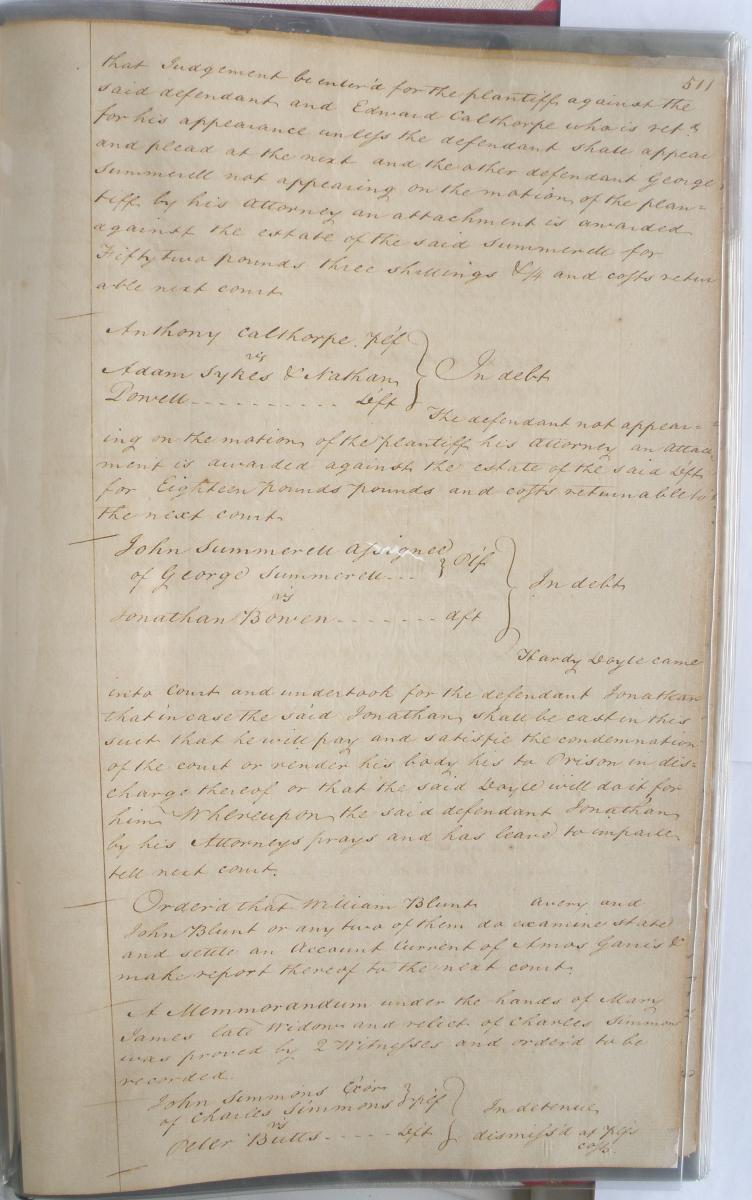 511
that Judgement be enter'd for the plantiff against the
said defendant and Edward Calthorpe who is ret.d
for his appearance unless the defendant shall appear
and plead at the next and the other defendant George
Summerell not appearing on the motion of the plan=
tiff by his Attorney an attachment is awarded
against the estate of the said Summerell for
Fifty two pounds three shillings & /4 and costs return
able next court
Anthony Calthorpe plf
vs
Adam Sykes & Nathan
Dowell - - - - - - - - - - Dft
In debt
The defendant not appear=
ing on the motion of the plantiff his Attorney an attac
ment is awarded against the estate of the said Dft
for Eighteen pounds pounds and costs returnable to
the next court
John Summerell assignee
of George Summerell - - - plf
vs
Jonathan Bowen - - - - - - - dft
In debt
Hardy Doyle came
into Court and undertook for the defendant Jonathan
that in case the said Jonathan shall be cast in this
suit that he will pay and satisfie the condemnation
of the court or render his body his to Prison in dis=
charge thereof or that the said Doyle will do it for
him Whereupon the said defendant Jonathan
by his Attorneys prays and has leave to imparle
till next court.
Order'd that William Blunt Avery and
John Blunt or any two of them do examine state
and settle an Account Current of Amos Ganis &
make report thereof to the next court.
A Memmorandum under the hands of Mary
James late Widow and relict of Charles Simmons
was proved by 2 Witnesses and order'd to be
recorded.
John Simmons Exor
of Charles Simmons plf
vs
Peter Butts - - - - - Dft
In detenue
dismiss'd at plfs
costs